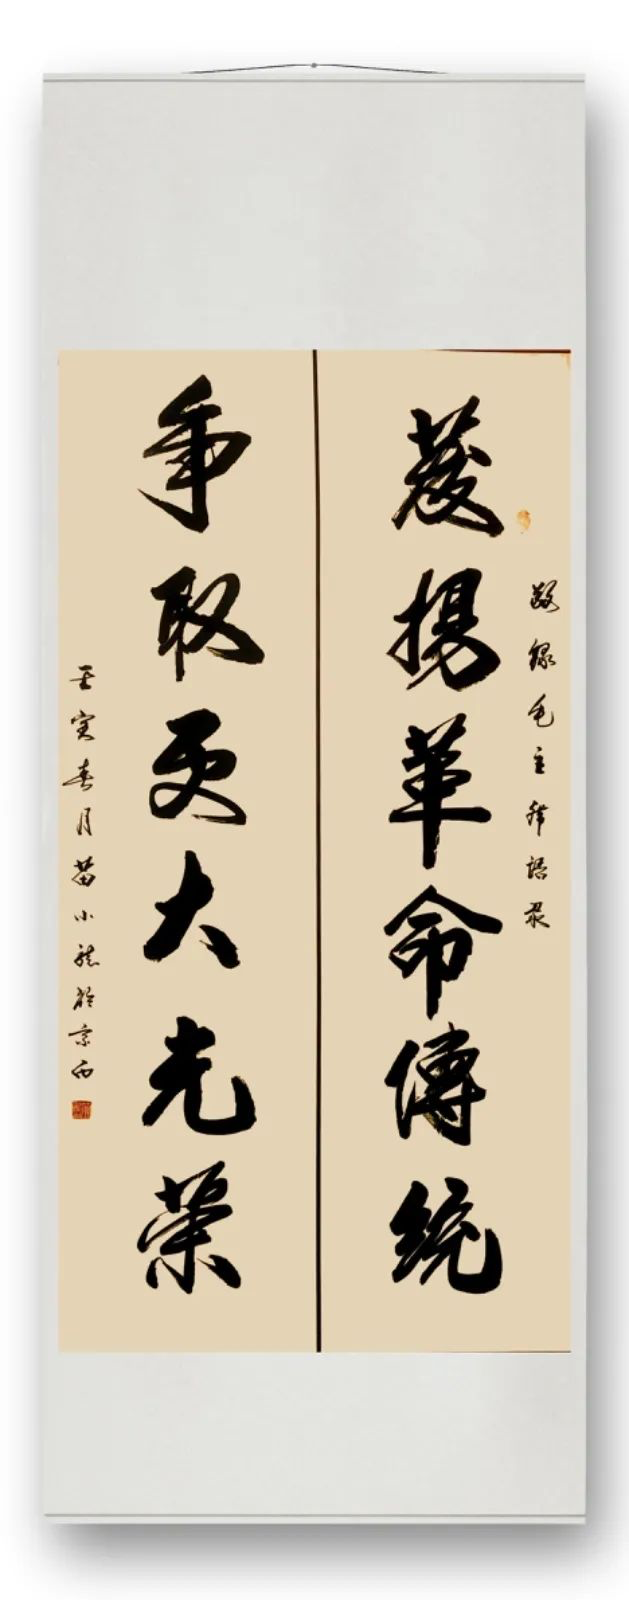 敬錄毛主席語录
發揚革命傳統
争取更大光荣
壬寅春月苗小龍於京西